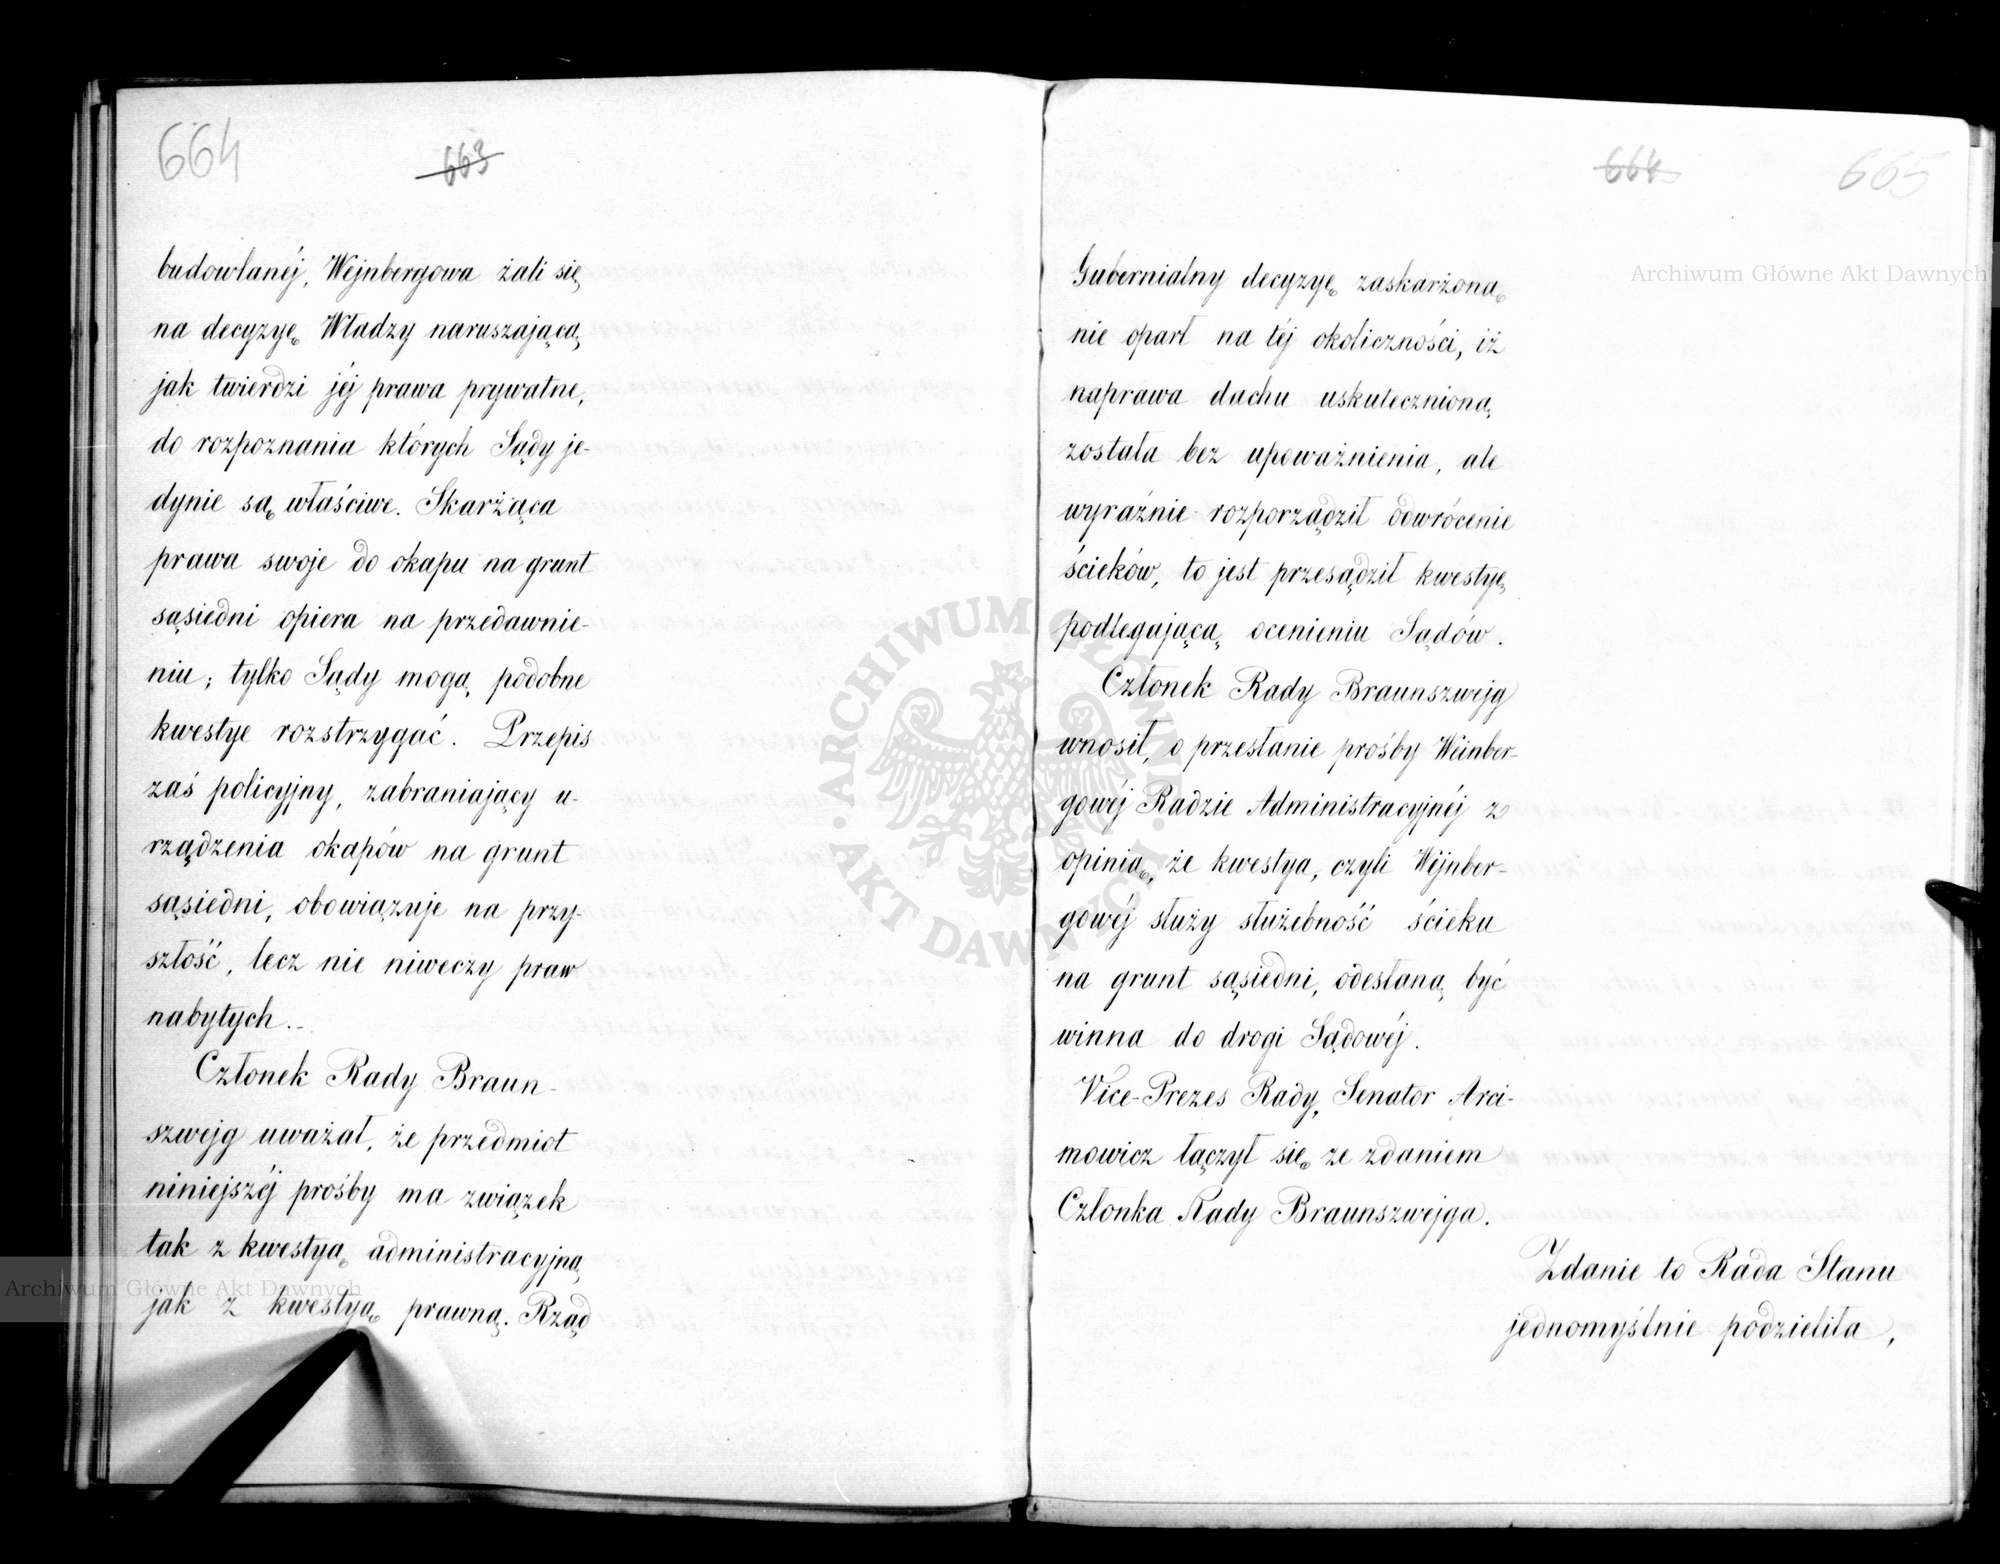 664
663
budowlanéj, Wejnbergowa żali się
na decyzyę Władzy naruszającą,
jak twierdzi jéj prawa prywatne,
do rozpoznania których Sądy je-
dynie są właściwe. Skarżąca
prawa swoje do okapu na grunt
sąsiedni opiera na przedawnie-
niu; tylko Sądy mogą podobne
kwestye rozstrzygać. Przepis
zaś policyjny, zabraniający u-
rządzenia okapów na grunt
sąsiedni, obowiązuje na przy-
szłość, lecz nie niweczy praw
nabytych.
Członek Rady Braun-
szwejg uważał, że przedmiot
niniejszéj prośby ma związek
tak z kwestyą administracyjną
jak z kwestyą prawną. Rząd
664
665
Gubernialny decyzyę zaskarżoną
nie oparł na téj okoliczności, iż
naprawa dachu uskutecznioną
została bez upoważnienia, ale
wyraźnie rozporządził odwrócenie
ścieków, to jest przesądził kwestyę
podlegającą ocenieniu Sądów.
Członek Rady Braunszwejg
wnosił, o przesłanie prośby Weinber-
gowéj Radzie Administracyjnéj z
opinią, że kwestya, czyli Wejnber-
gowéj służy służebność ścieku
na grunt sąsiedni, odesłaną być
winna do drogi Sądowéj.
Vice-Prezes Rady, Senator Arci-
mowicz łączył się ze zdaniem
Członka Rady Braunszwejga.
Zdanie to Rada Stanu
jednomyślnie podzieliła,
ARCHIWUM GŁÓWNE
AKT DAWNYCH
Archiwum Główne Akt Dawnych
Archiwum Główne Akt Dawnych